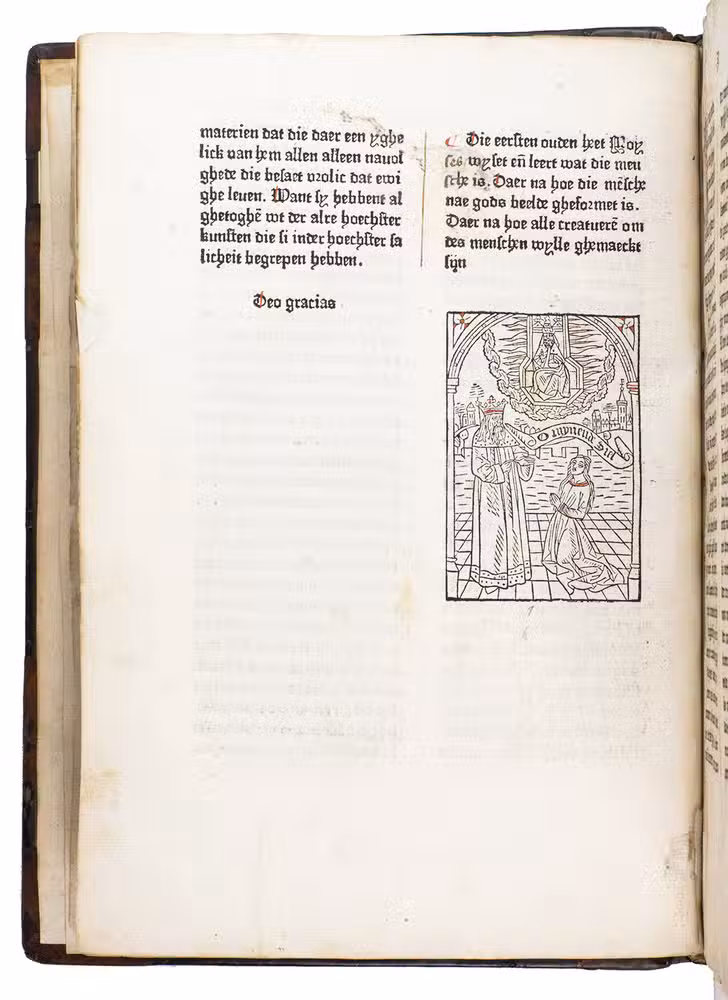 materien dat die daer een yghe
lick van hem allen alleen nauol
ghede die besat vrolic dat ewi
ghe leuen. Want sy hebbent al
ghetoghē wt der alre hoechster
kunsten die si inder hoechster sa
licheit begrepen hebben.
Deo gracias
Die eersten ouden heet Moy
ses wyset eñ leert wat die men
sche is. Daer na hoe die mēsche
nae gods beelde gheformet is.
Daer na hoe alle creaturē om
des menschen wylle ghemaeckt
sijn
O